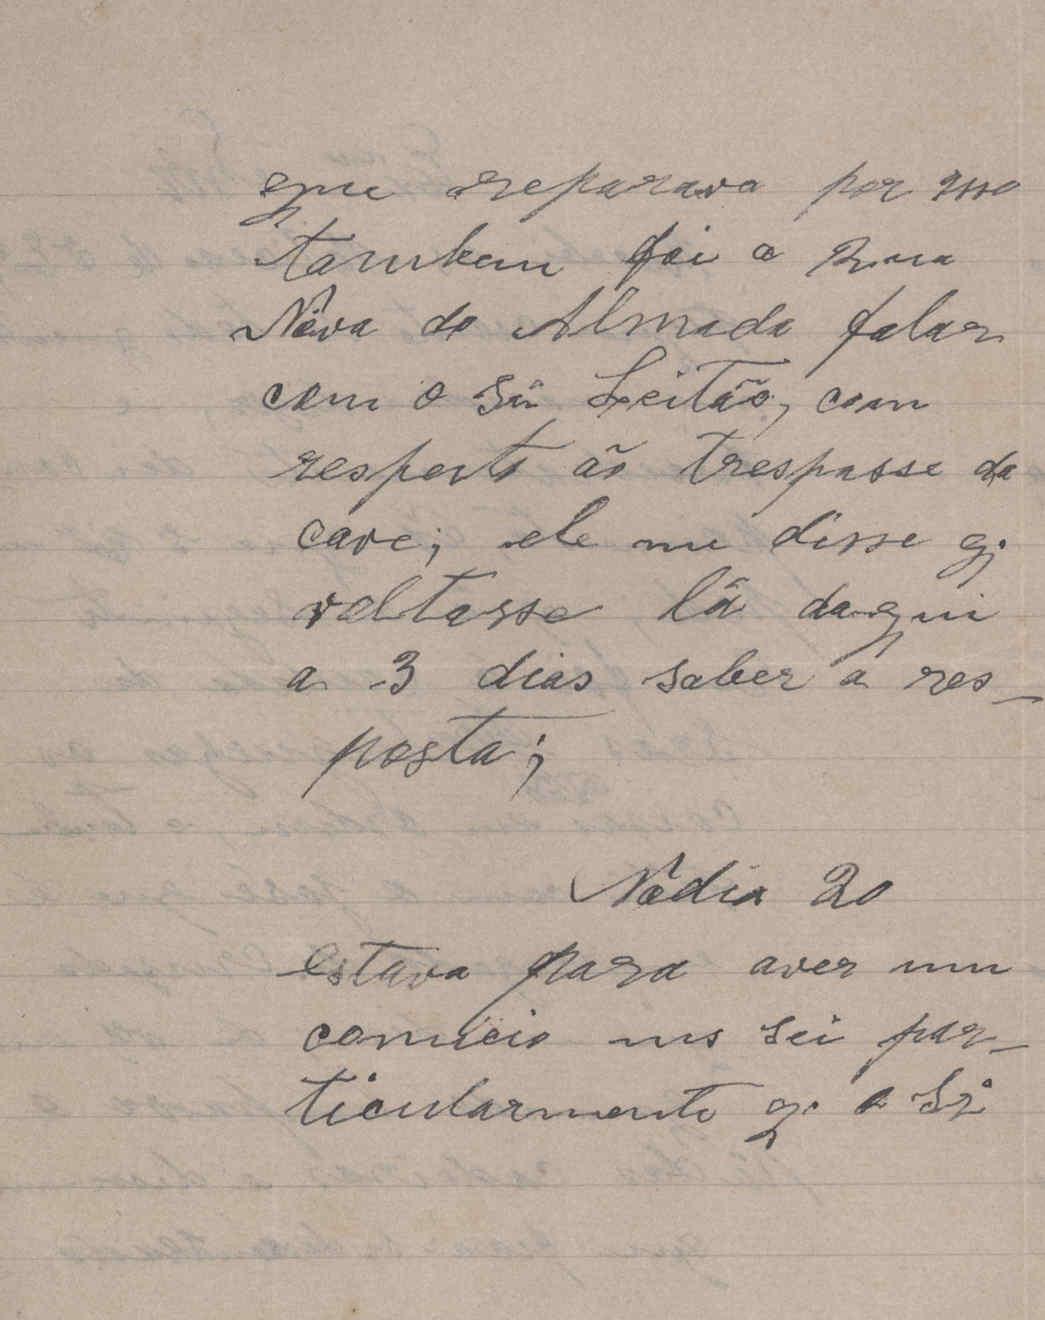 que reparava por isso
tambem foi a Rua
Nova do Almada falar
com o Sr Leitão, com
respeito ão trespasse da
cave; ele me disse q.
voltasse lá daqui
a 3 dias saber a res-
posta;
No dia 20
estava para aver um
comicio mas sei par-
ticularmente q. o Sr